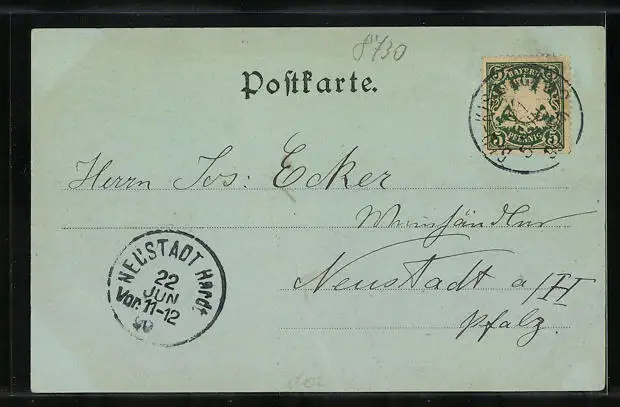 8730
Postkarte.
BAYERN
5 5
PFENNIG
Herrn Jos: Ecker
Weinhändler
Neustadt a/H
Pfalz.
NEUSTADT Hardt
22
JUN
Vor. 11-12